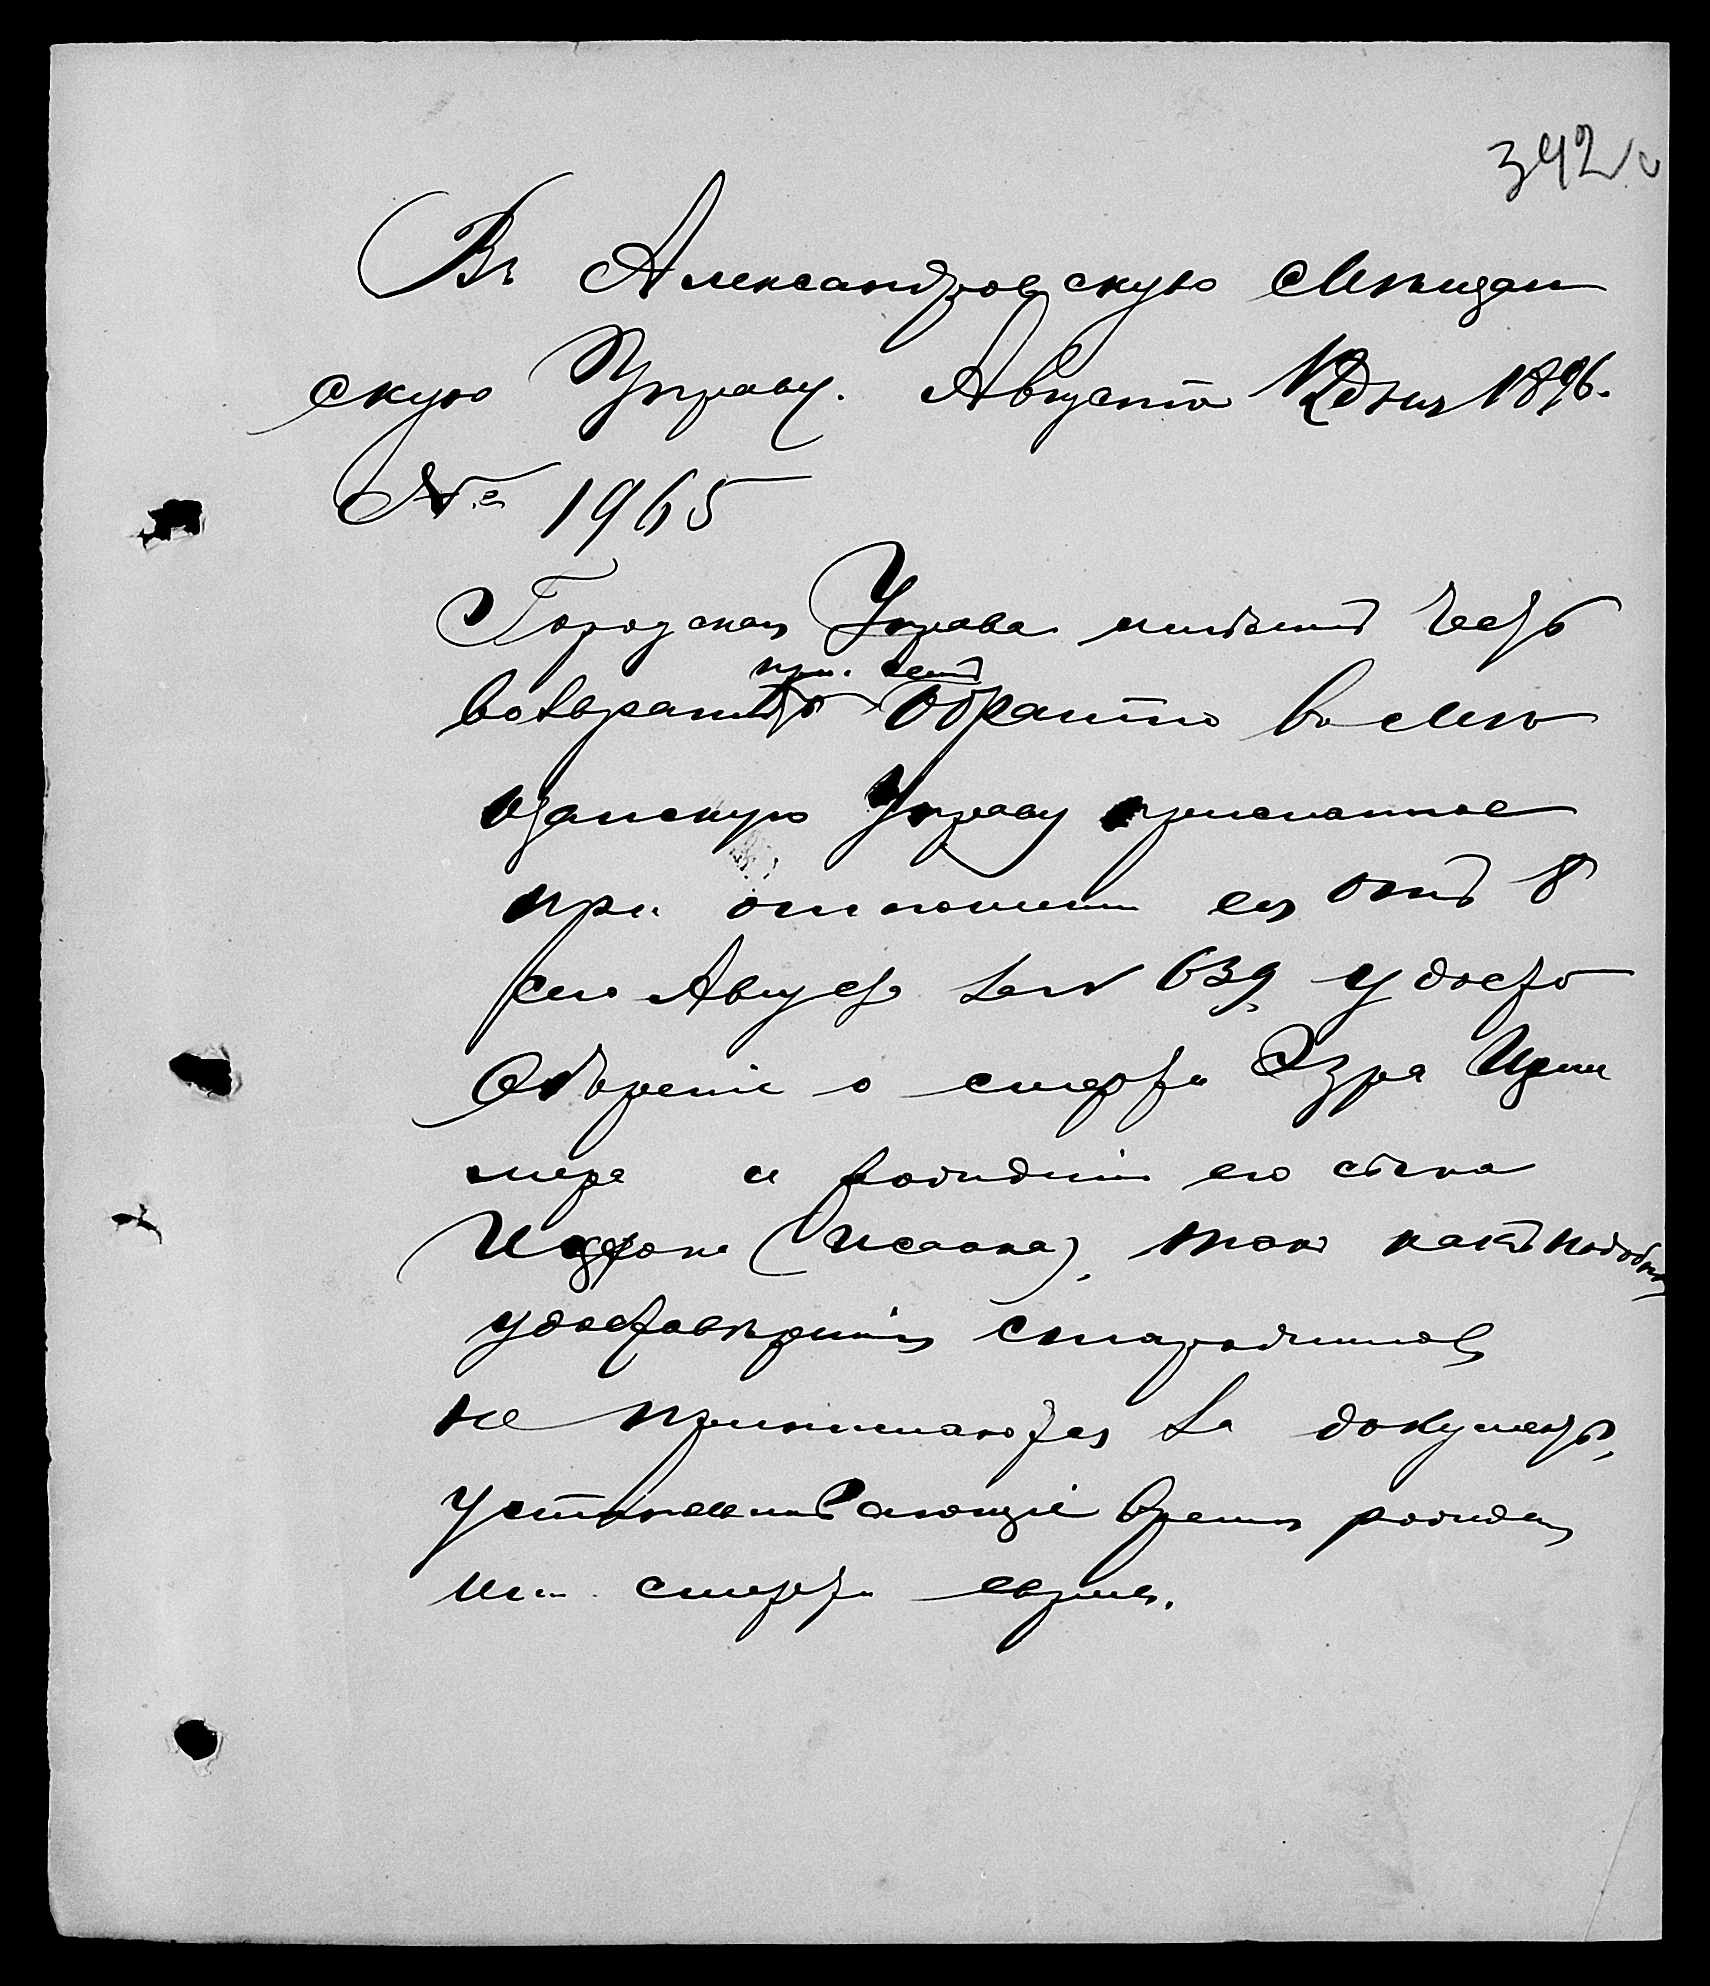 342
Въ Александровскую Мѣщан
скую Управу. Августа 12 дня 1896.
№ 1965
Городская Управа имѣетъ честь
при семъ
возвратить обратно въ Мѣ
щанскую Управу присланное
при отношеніи ея отъ 8
сего Августа за № 639 удосто
вѣреніе о смерти Эзра
и рожденіи его сына
(Исаака), такъ какъ подобныя
удостовѣренія
не принимаются за документъ,
устанавливающіе время рожденія
или смерти евреевъ.